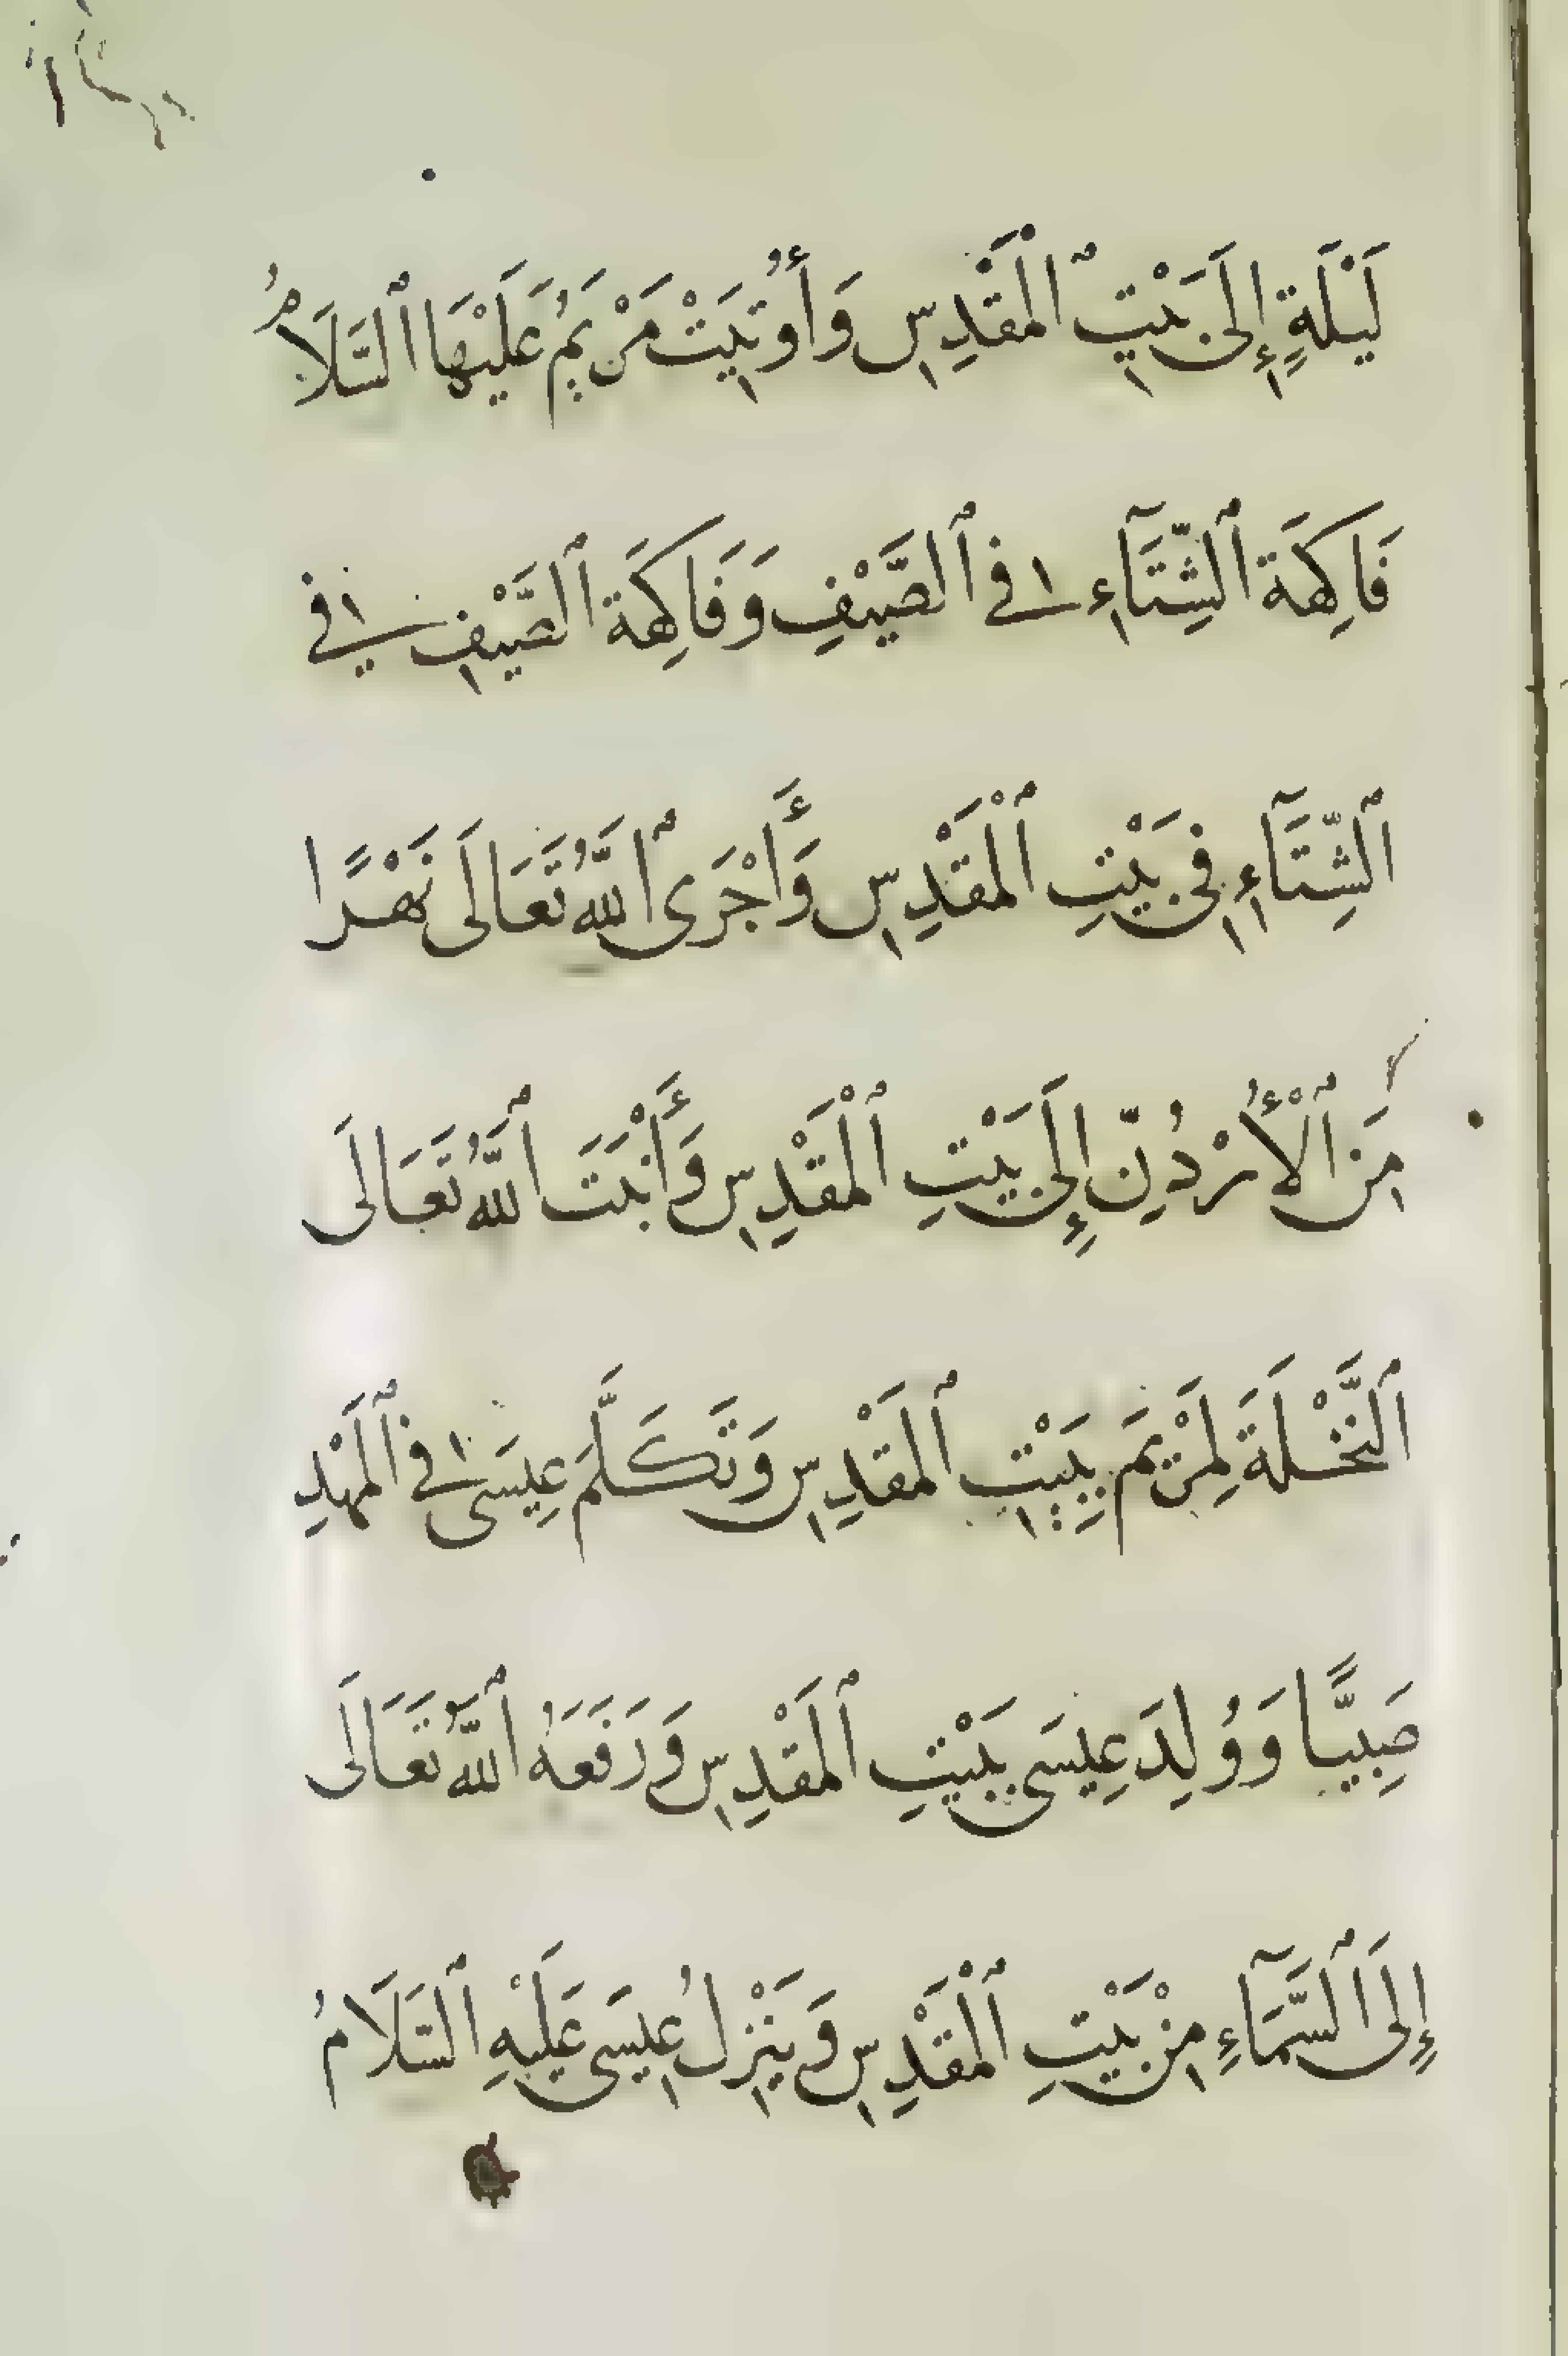 لَيْلَةٍ إِلَىٰ بَيْتِ ٱلْمَقْدِسِ وَأُوتِيَتْ مَرْيَمُ عَلَيْهَا ٱلسَّلَامُ
فَاكِهَةَ ٱلشِّتَآءِ فِي ٱلصَّيْفِ وَفَاكِهَةَ ٱلصَّيْفِ فِي
ٱلشِّتَآءِ فِي بَيْتِ ٱلْمَقْدِسِ وَأَجْرَى ٱللَّهُ تَعَالَى نَهْرًا
مِنَ ٱلْأُرْدُنِّ إِلَى بَيْتِ ٱلْمَقْدِسِ وَأَنْبَتَ ٱللَّهُ تَعَالَى
ٱلنَّخْلَةَ لِمَرْيَمَ بِبَيْتِ ٱلْمَقْدِسِ وَتَكَلَّمَ عِيسَى فِي ٱلْمَهْدِ
صَبِيًّا وَوُلِدَ عِيسَى بِبَيْتِ ٱلْمَقْدِسِ وَرَفَعَهُ ٱللَّهُ تَعَالَى
إِلَى ٱلسَّمَآءِ مِنْ بَيْتِ ٱلْمَقْدِسِ وَيَنْزِلُ عِيسَى عَلَيْهِ ٱلسَّلَامُ